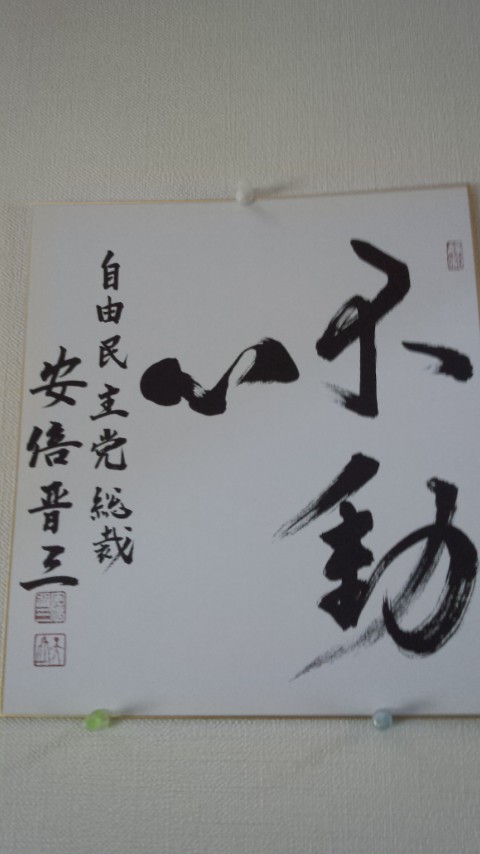 不動
心
自由民主党総裁
安倍晋三